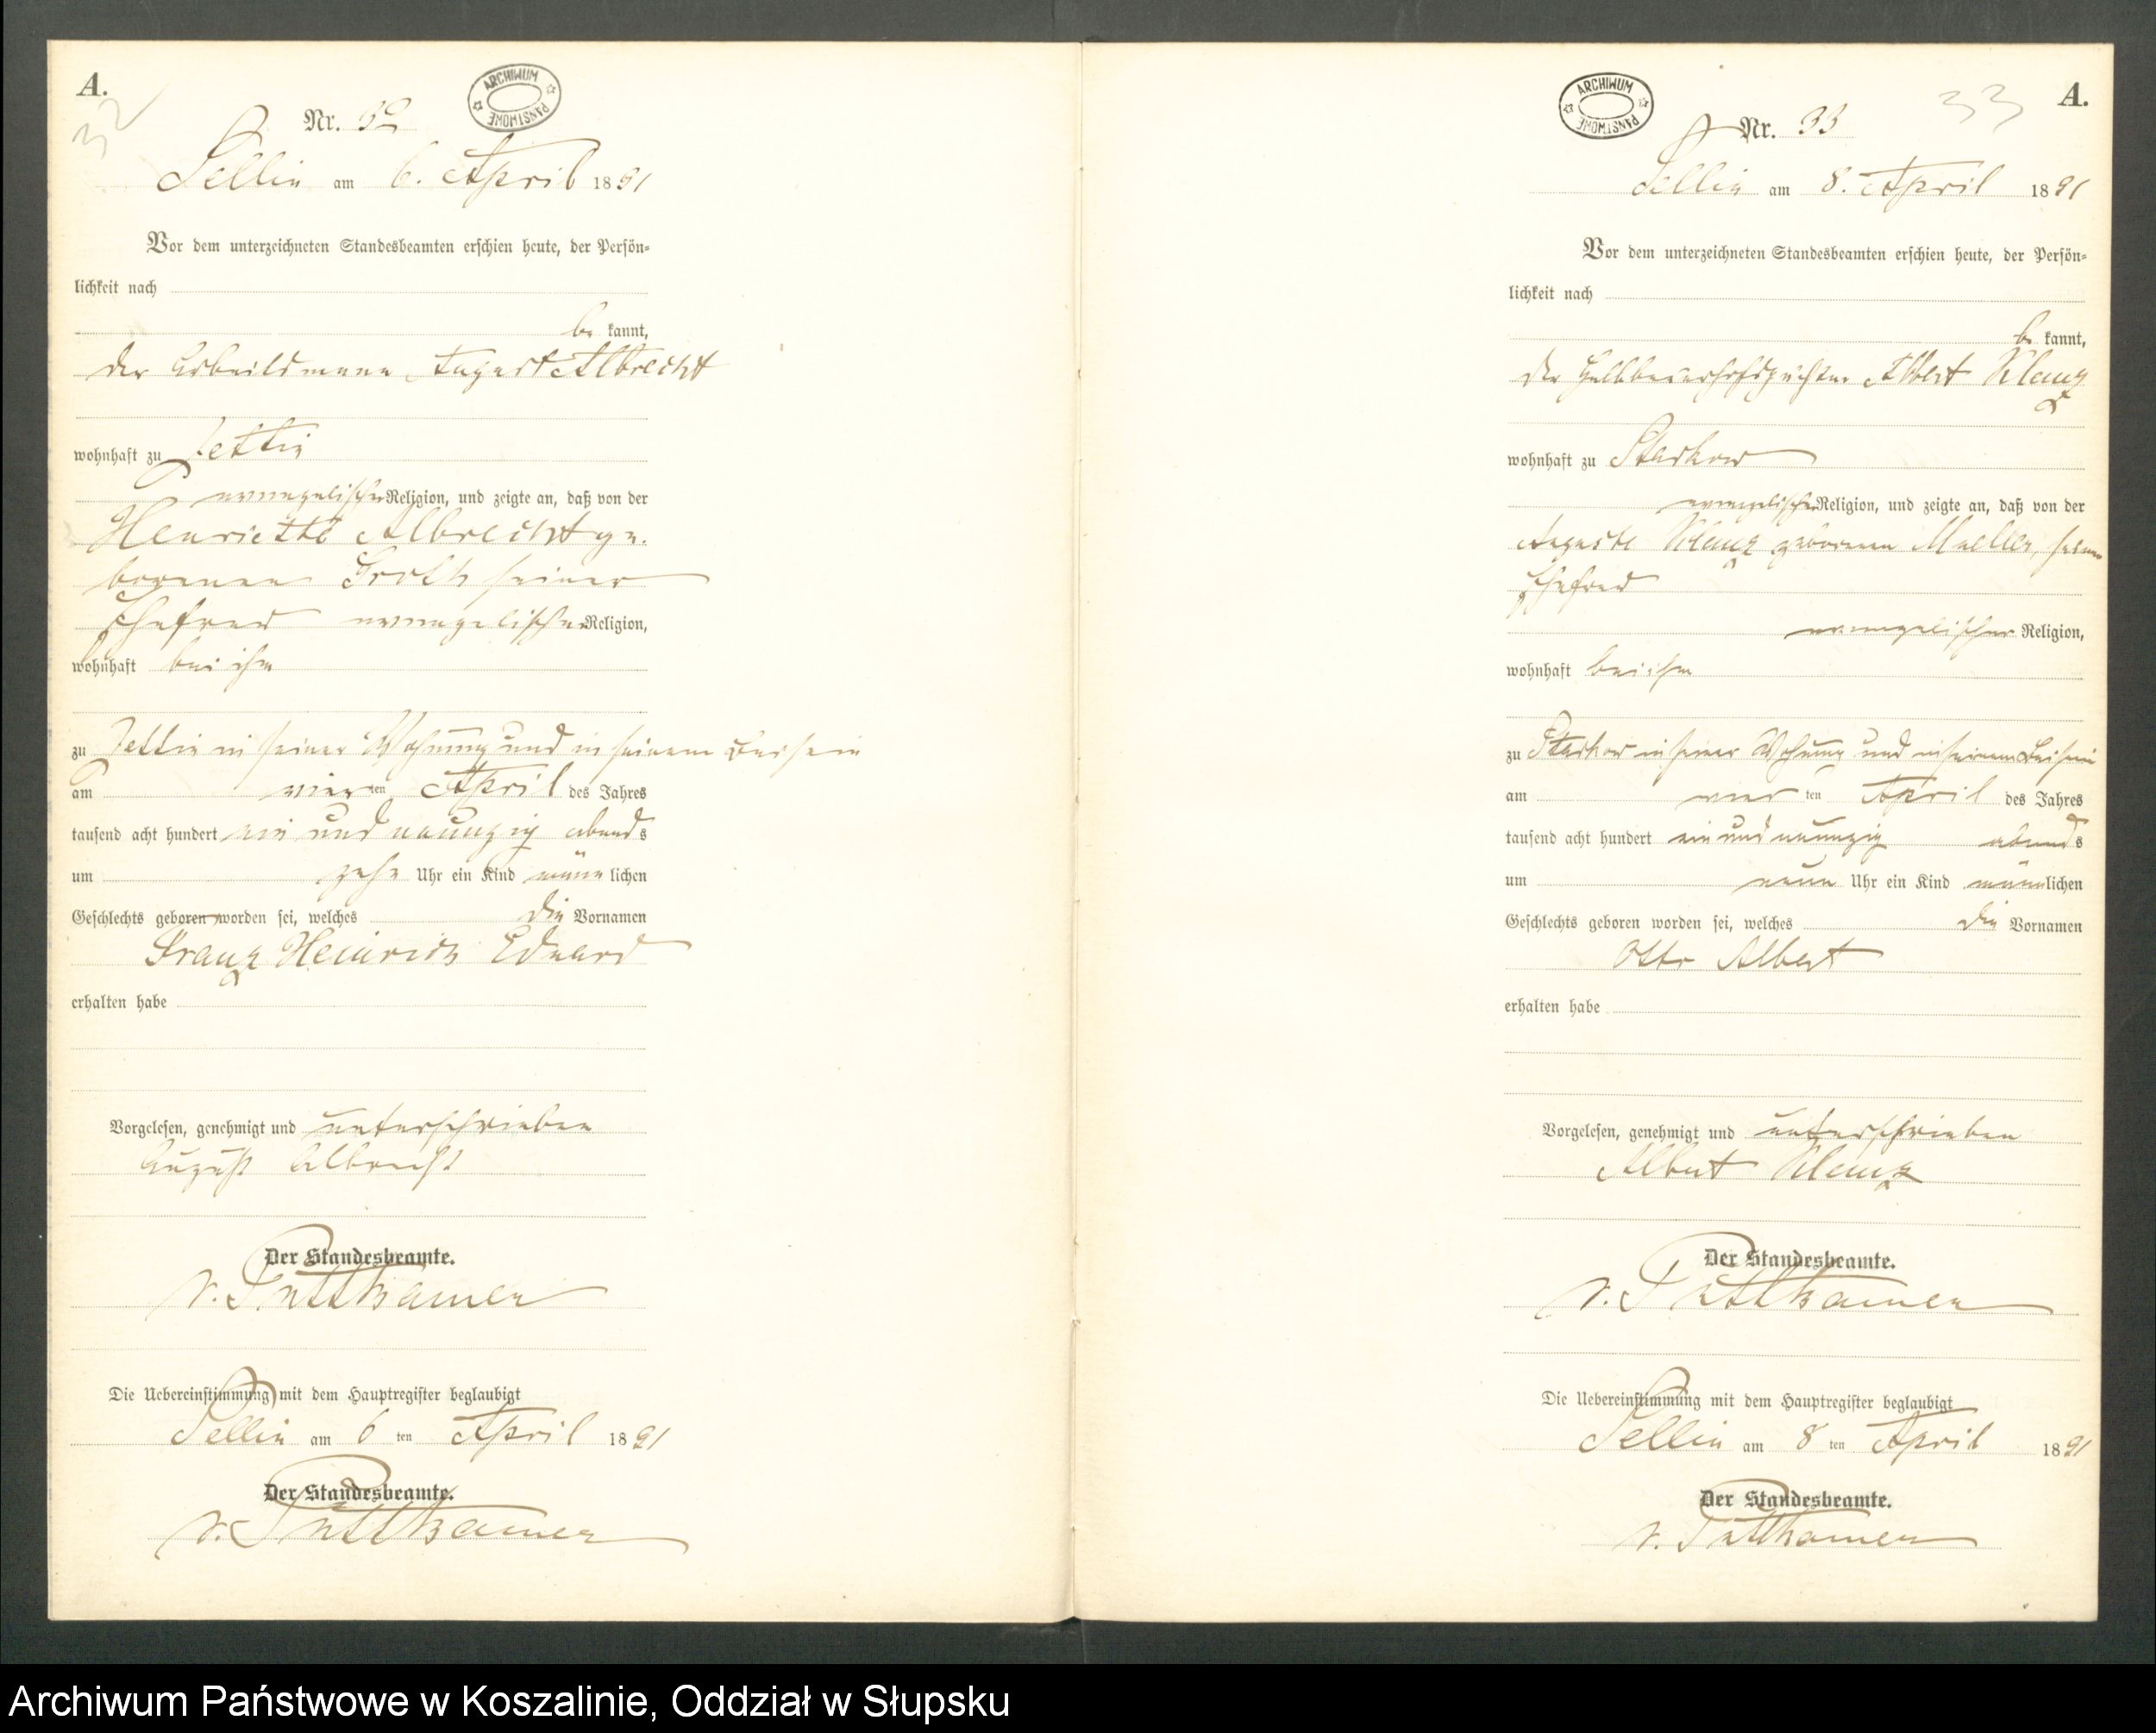 A.
32
ARCHIWUM PAŃSTWOWE
Nr. 32
Sellin am 6. April 1891
Vor dem unterzeichneten Standesbeamten erschien heute, der Persön-
lichkeit nach
be kannt,
der Arbeitsmann August Albrecht
wohnhaft zu Jettin
evangelischer Religion, und zeigte an, daß von der
Henriette Albrecht ge-
borenen Groth seiner
Ehefrau evangelischer Religion,
wohnhaft bei ihm
zu Jettin in seiner Wohnung und in seinem Beisein
am vier ten April des Jahres
tausend acht hundert ein und neunzig abends
um zehn Uhr ein Kind männlichen
Geschlechts geboren worden sei, welches die Vornamen
Franz Heinrich Eduard
erhalten habe
Vorgelesen, genehmigt und unterschrieben
August Albrecht
Der Standesbeamte.
v. Puttkamer
Die Uebereinstimmung mit dem Hauptregister beglaubigt
Sellin am 6 ten April 1891
Der Standesbeamte.
v. Puttkamer
ARCHIWUM PAŃSTWOWE
33
A.
Nr. 33
Sellin am 8. April 1891
Vor dem unterzeichneten Standesbeamten erschien heute, der Persön-
lichkeit nach
be kannt,
der Halbbauerhofspächter Albert Klanz
wohnhaft zu Starkow
evangelischer Religion, und zeigte an, daß von der
Auguste Klanz geborenen Mueller, seiner
Ehefrau
evangelischer Religion,
wohnhaft bei ihm
zu Starkow in seiner Wohnung und in seinem Beisein
am vier ten April des Jahres
tausend acht hundert ein und neunzig abends
um neun Uhr ein Kind männlichen
Geschlechts geboren worden sei, welches die Vornamen
Otto Albert
erhalten habe
Vorgelesen, genehmigt und unterschrieben
Albert Klanz
Der Standesbeamte.
v. Puttkamer
Die Uebereinstimmung mit dem Hauptregister beglaubigt
Sellin am 8 ten April 1891
Der Standesbeamte.
v. Puttkamer
Archiwum Państwowe w Koszalinie, Oddział w Słupsku